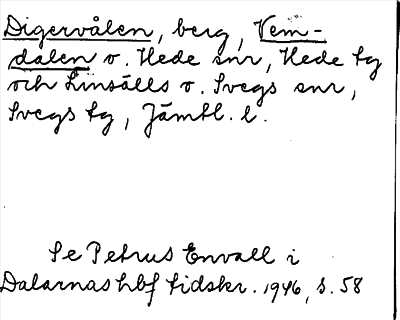 Digervålen, berg, Vem-
dalen o. Hede snr, Hede tg
och Linsälls o. Svegs snr,
Svegs tg, Jämtl. l.
Se Petrus Envall i
Dalarnas hbf tidskr. 1946, s. 58